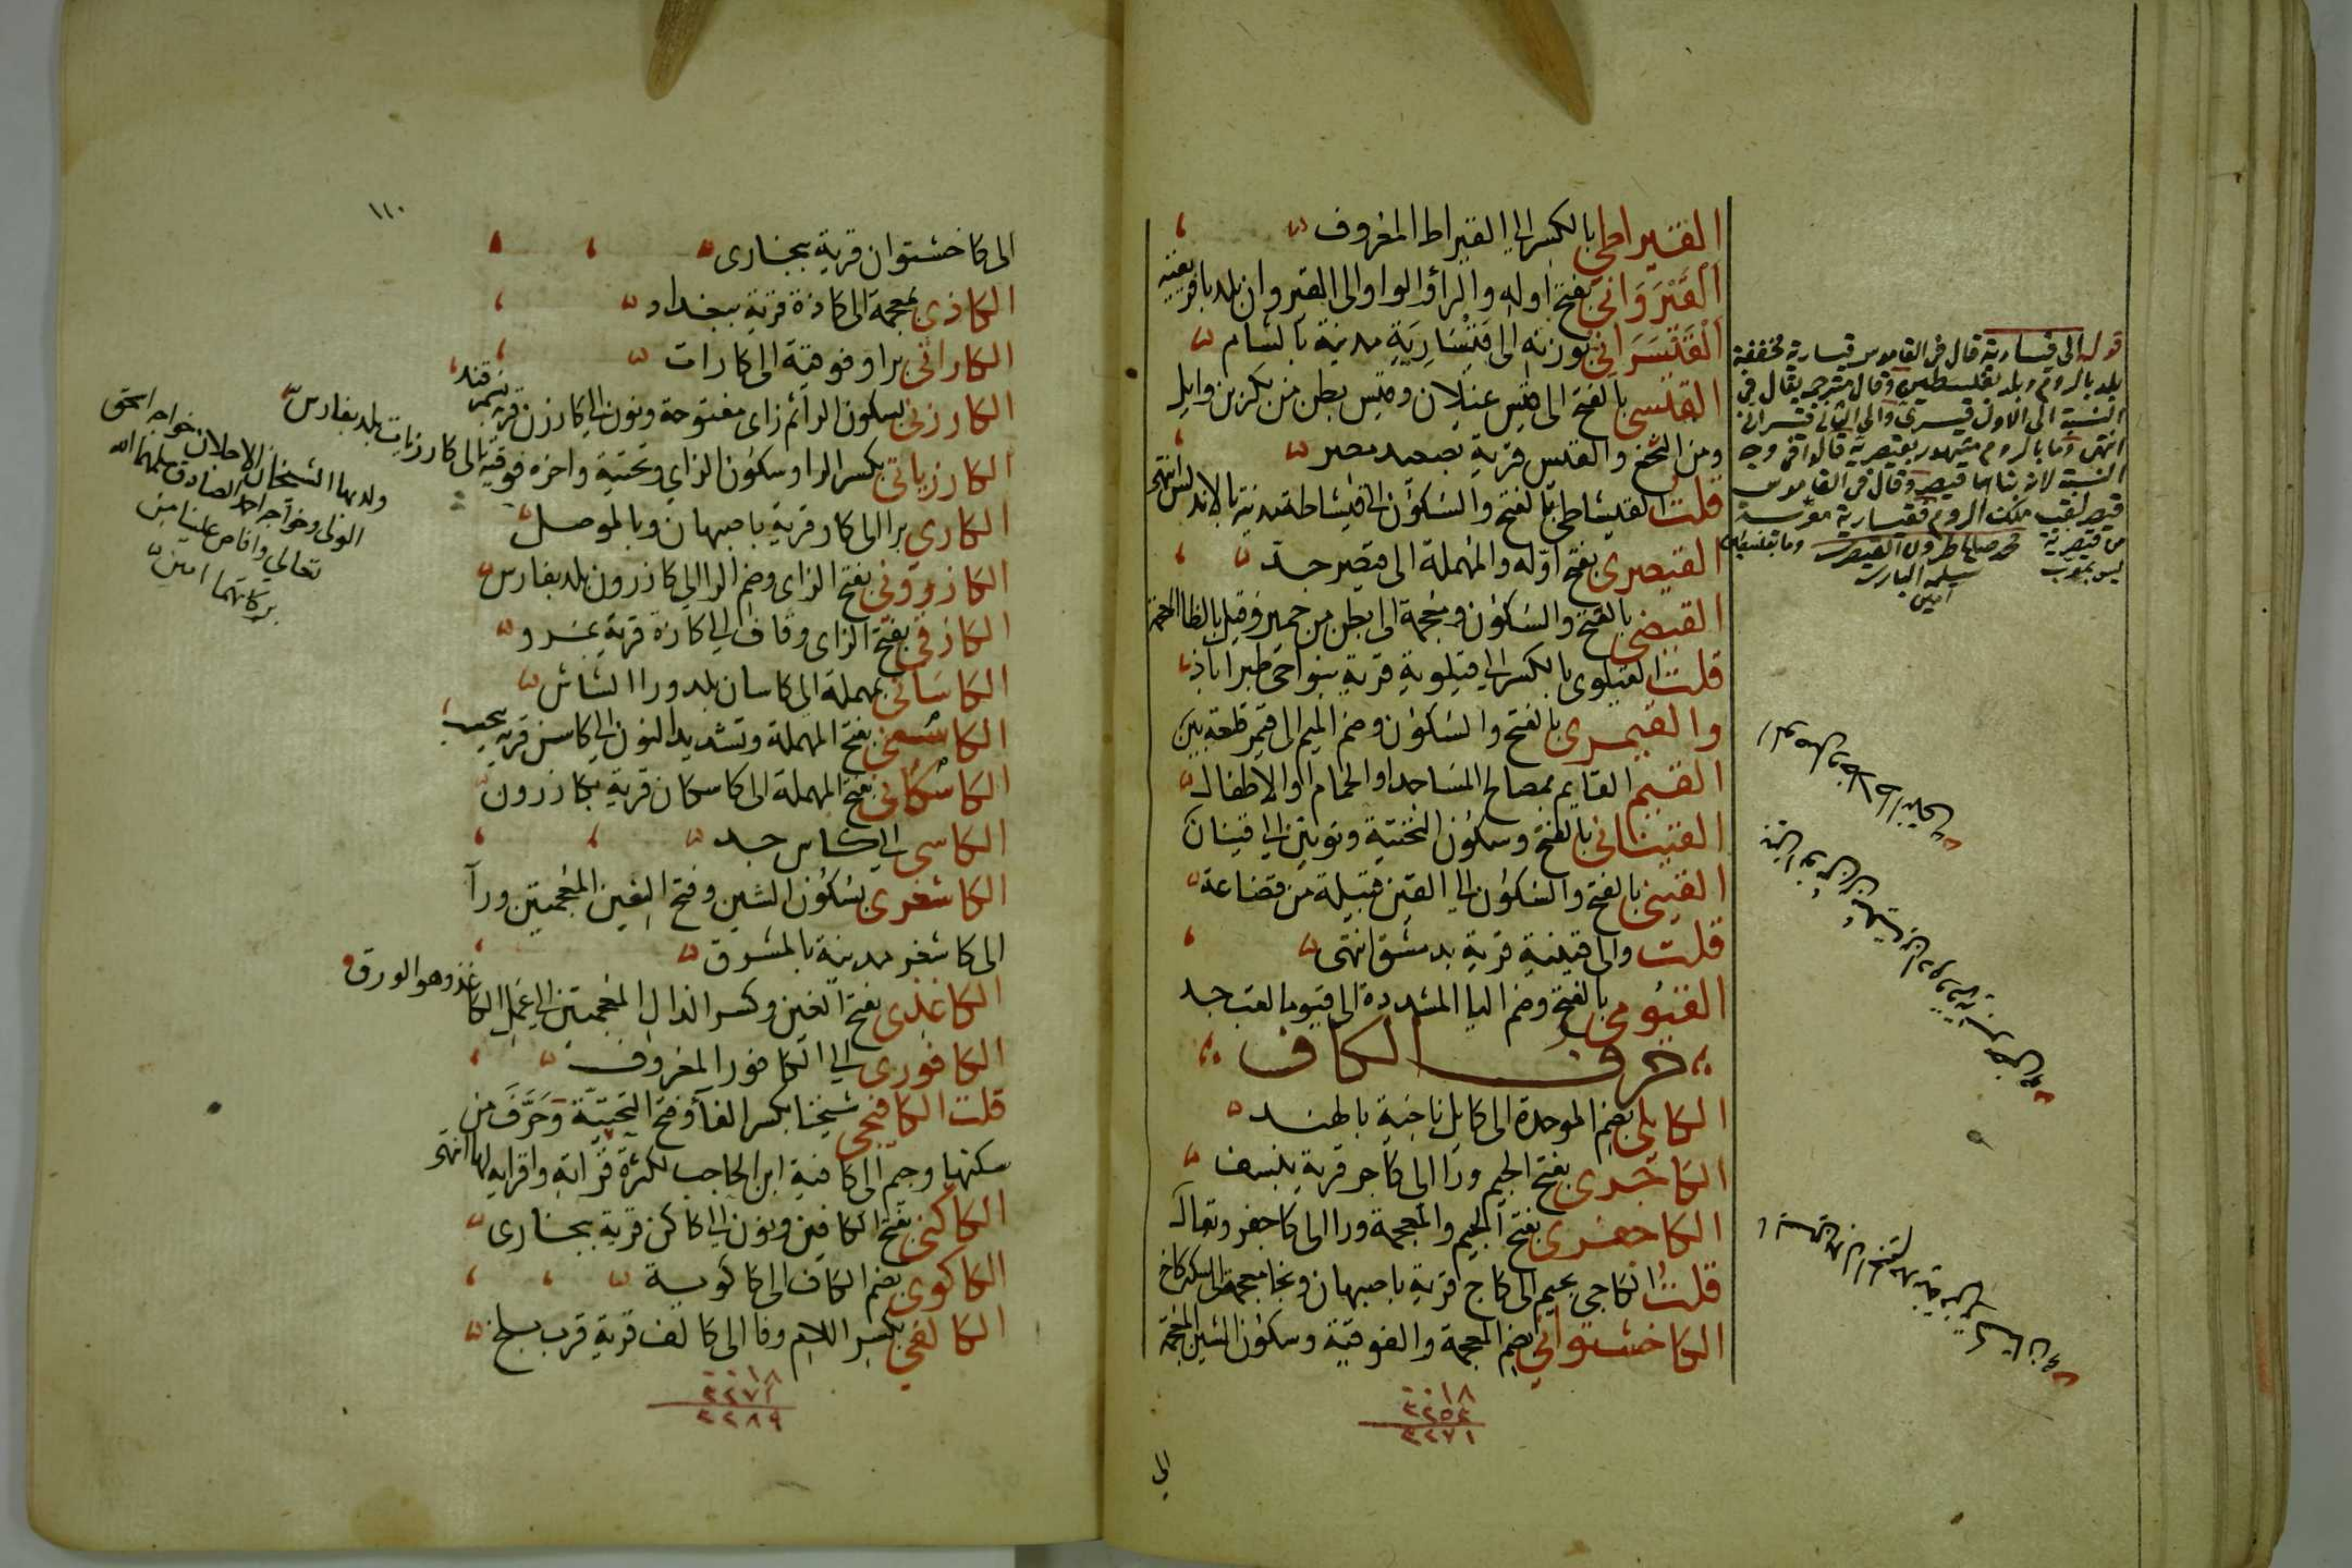 القيراطي بالكسر الى القيراط المعروف
القَيْرَوَاني بفتح اوله والرا والواو الى القيروان بلد بافريقية
القَيْسَرَاني بوزنه الى قَيْسَارِيَة مدينة بالشام
القيسى بالفتح الى قيس عيلان وقيس بطن من بكر بن وايل
ومن النخع والقيس قرية بصعيد مصر
قلت القيشاطى بالفتح والسكون الى قيشاطة مدينة بالاندلس انتهى
القيصرى بفتح اوله والمهملة الى قيصر جد
القيضى بالفتح والسكون ومعجمة الى بطن من حمير وقيل بالظا المعجمة
قلت القيلوى بالكسر الى قيلوية قرية بنواحى مطيراباذ
والقيمرى بالفتح والسكون وضم الميم الى قيمر قلعة بين
القيم القايم بمصالح المساجد او الحمام او الاطفال
القينانى بالفتح وسكون التحتية ونونين الى قينان
القينى بالفتح والسكون الى القين قبيلة من قضاعة
قلت والى قينية قرية بدمشق انتهى
القيومى بالفتح وضم اليا المشددة الى قيوما لقب جد
حرف الكاف
الكابلى بضم الموحدة الى كابل ناحية بالهند
الكاجَرى بفتح الجيم ورا الى كاجر قرية بنسف
الكاجغرى بفتح الجيم والمعجمة ورا الى كاجغر وتقال
قلت الكاجى بجيم الى كاج قرية باصبهان وبخا معجمة الى سكة كاخ
الكاخشتوانى بضم المعجمة والفوقية وسكون الشين المعجمة
٠٠١٨
٢٢٥٣
٢٢٧١
الى
قوله الى قيسارية قال فى القاموس قيسارية مخففة
بلد بالروم وبلد بفلسطين وقال مترجمه يقال فى
النسبة الى الاول قيسرى والى الثانى قيسرانى
انتهى وما بالروم مشهور بقيصرية قالوا فى وجه
النسبة لانه بناها قيصر وقال فى القاموس
قيصر لقب ملك الروم فقيسارية معربة
من قيصرية
سلمه البارى
امين
١١٠
الى كاخشتوان قرية ببخارى
الكاذى بمعجمة الى كاذة قرية ببغداد
الكاراتى برا وفوقية الى كارات
الكارزنى بسكون الرا ثم زاى مفتوحة ونون الى كارزن قرية بسمرقند
الكارزياتى بكسر الرا وسكون الزاى وتحتية واخره فوقية الى كارزيات بلد بفارس
الكارى برا الى كار قرية باصبهان وبالموصل
الكازرونى بفتح الزاى وضم الرا الى كازرون بلد بفارس
الكازقى بفتح الزاى وقاف الى كازة قرية بمرو
الكاسَانى بمهملة الى كاسان بلد ورا الشاش
الكاسنى بفتح المهملة وتشديد النون الى كاسن قرية بنخشب
الكاسكانى بفتح المهملة الى كاسكان قرية بكازرون
الكاسى الى كاس جد
الكاشغرى بسكون الشين وفتح الغين المعجمتين ورا
الى كاشغر مدينة بالمشرق
الكاغذى بفتح الغين وكسر الذال المعجمتين الى عمل الكاغذ وهو الورق
الكافورى الى الكافور المعروف
قلت الكافيجى شيخنا بكسر الفا وفتح التحتية وحَرَّفَ من
سكنها وجيم الى كافية ابن الحاجب لكثرة قراته واقرايه لها انتهى
الكاكنى بفتح الكافين ونون الى كاكن قرية ببخارى
الكاكوى بضم الكاف الى كاكوية
الكالفى بكسر اللام وفا الى كالف قرية قرب بلخ
٠٠١٨
٢٢٧١
٢٢٨٩
ولد بها الشيخان الاجلان خواجه اسحق
الولى وخواجه احمد الصادق سلمهما الله
تعالى وافاض علينا من
بركاتهما امين